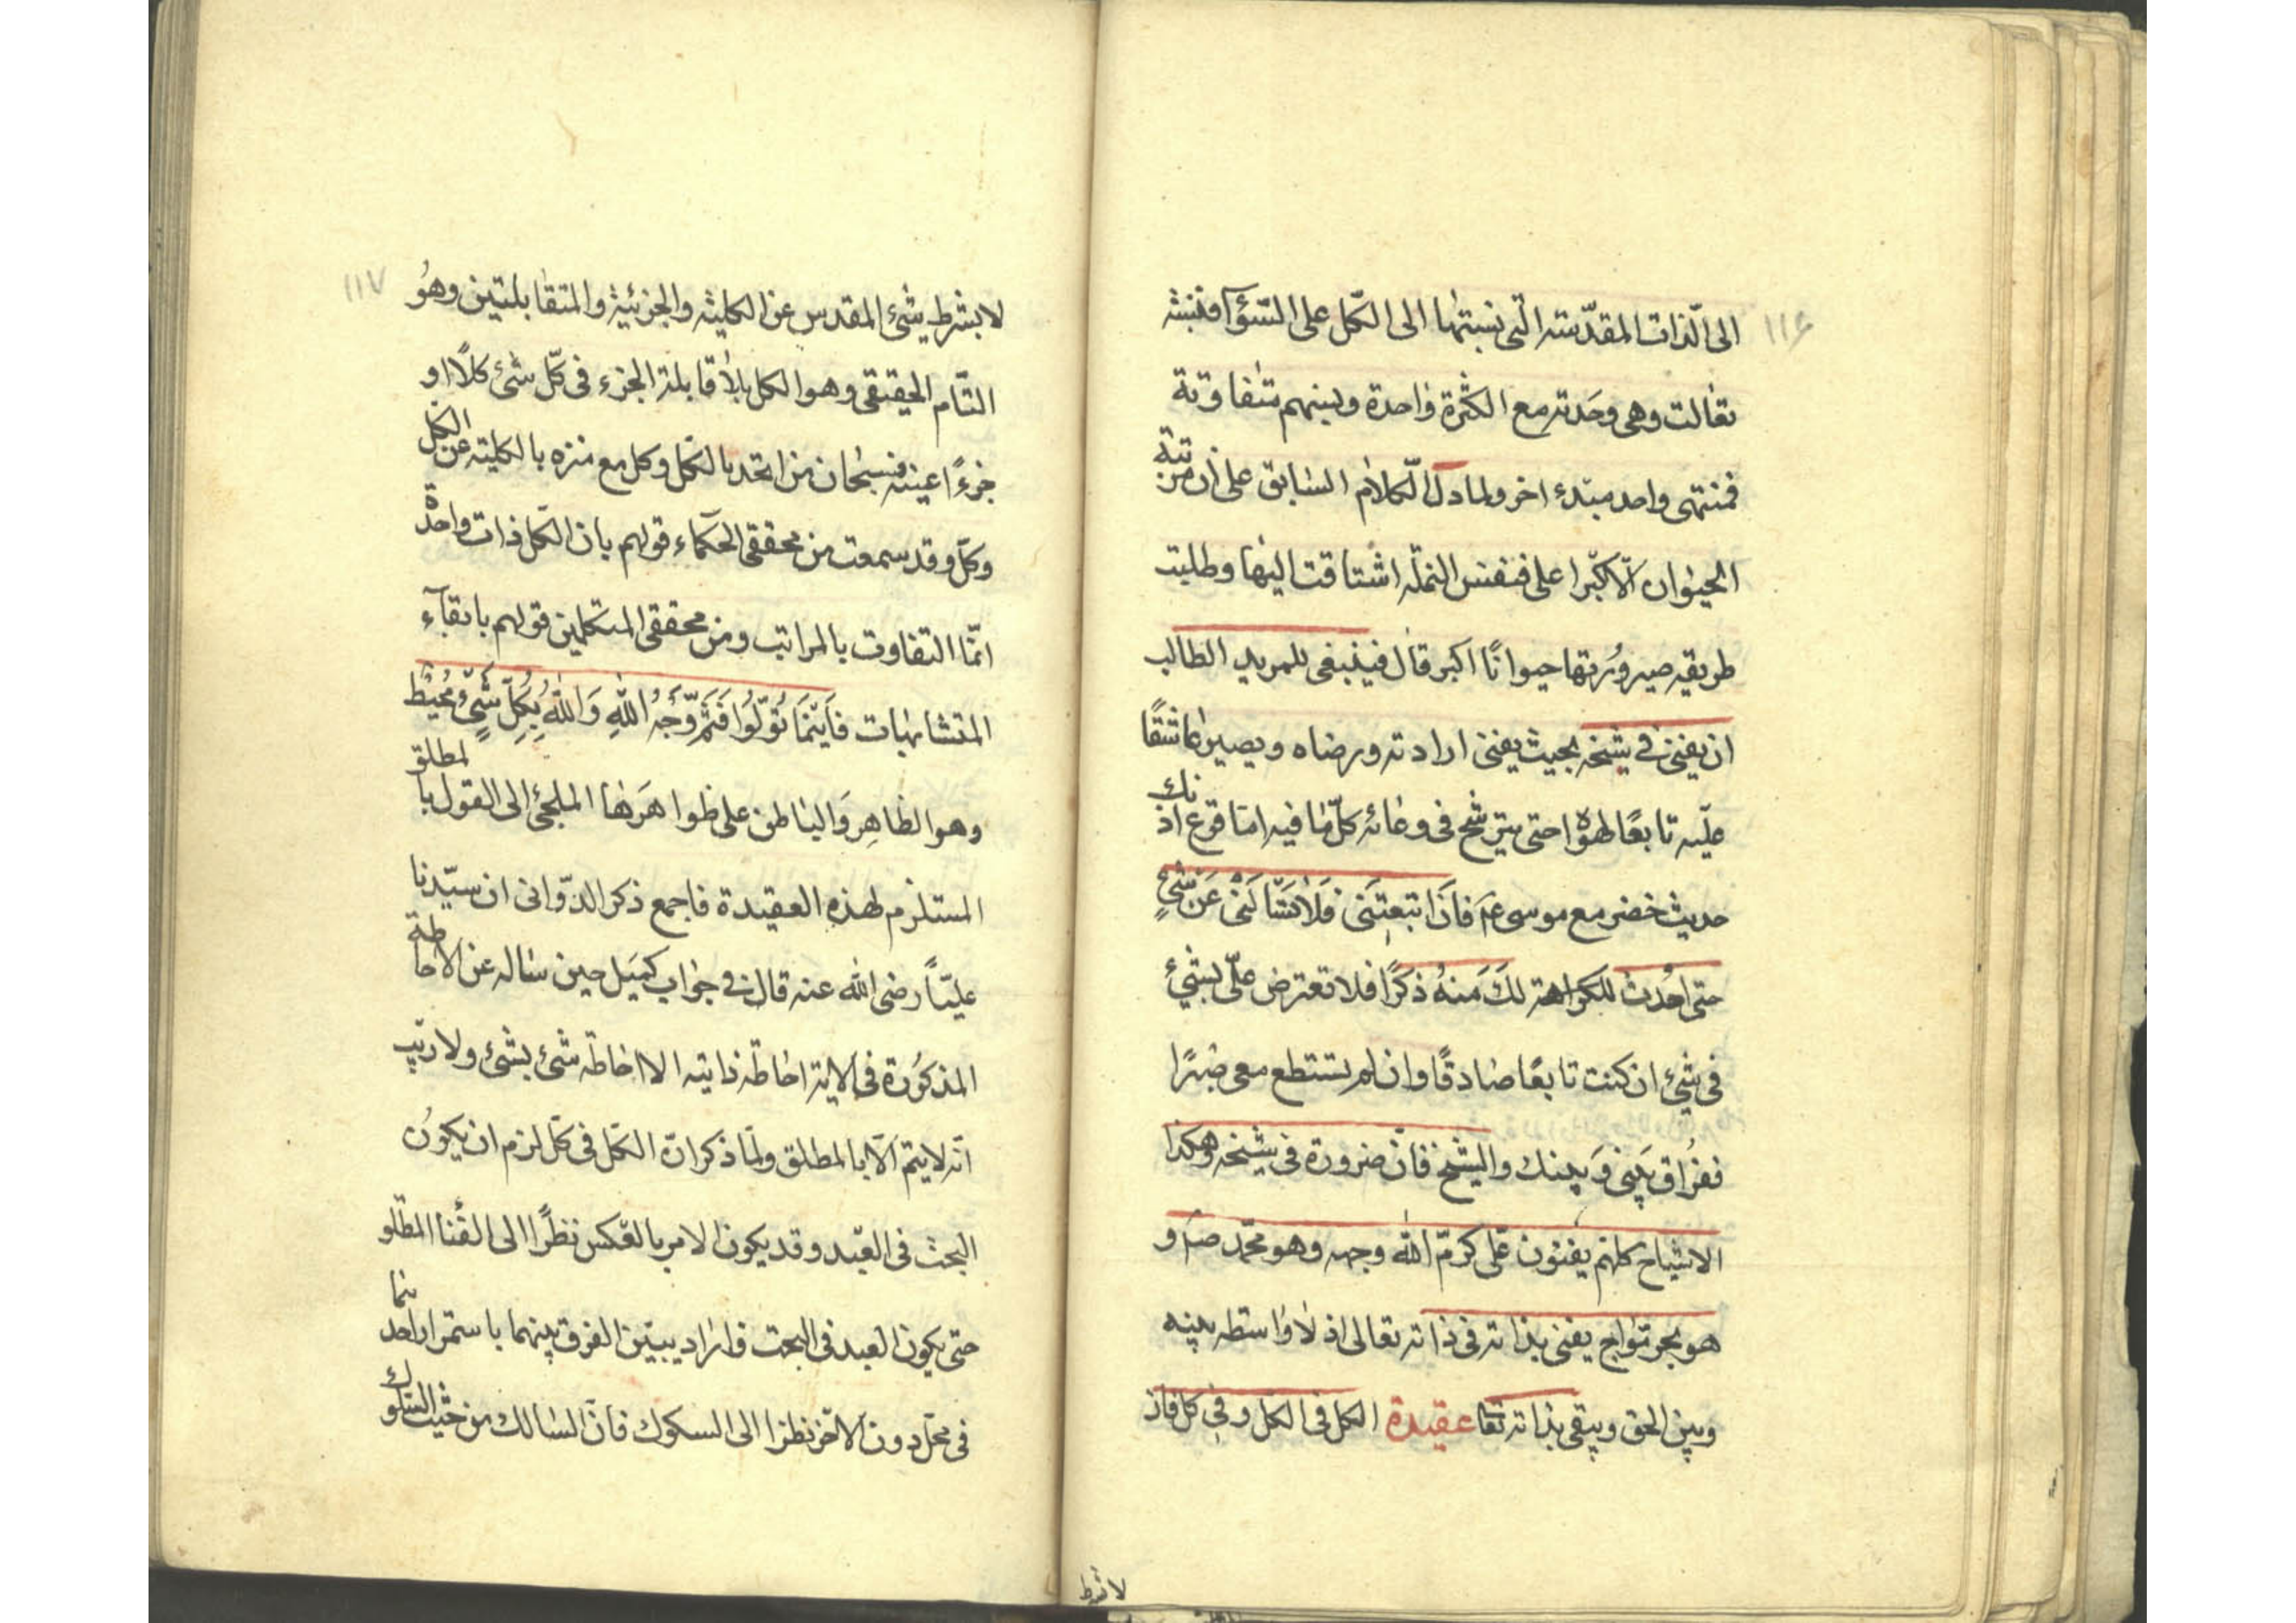 ١١٦
الى الّذات المقدّسته الّتى نسبتها الى الكلّ على السّوآ فنبسته
تعالت وهى وحَدته مع الكثرة واحدة وبينهم متفاوتة
فمنتهى واحد مبتدء اخر ولمادلّ الكلام السابق على ان مرتبة
الحيوان الّا كبرا على فنفس النملّه اشتاقت اليها وطلبت
طريقه صيرورتها حيوانًا اكبر قال فينبغى للمريد الطالب
ان يفنى فى شيخه بحيث يفنى ارادته ورضاه ويصير عاشقًا
عليه تابعًا لهوٰاه حتى يترشح فى وعائه كلّ مافيه اما قرع اذنك
حديث خضر مع موسى عم فَاذَا اتبعتَنى فَلَا تَسَّالَنى عَنْ شَىءٍ
حتى احُدث للكراهة لكَ مَنهُ ذكرًا فلا تعترض علىّ بشئ
فى شئ ان كنت تابعًا صادقًا وان لم تستطع معى صبرًا
ففرٰاق بَينى وَبينك والشيخ فانّ ضرورة فى شيخه وهكذا
الاشياخ كلهم يفنون علىّ كرمّ الله وجهه وهو محمّد صم و
هو بحر موّاج يفنى بذاته فى ذاته تعالى اذ لا واسطه بينه
وبين الحق ويبقى بذاته تعا عقيدة الكل فى الكل وفى كل فان
لا بشرط
١١٧
لا بشرط شئ المقدس عن الكليته والجزئية والمتقابلتين وهوُ
التّام الحقيقى وهو الكل بلا مقابلة الجزء فى كلّ شئ كلاًّ او
جزءًا عينه فسبحان من اتحد بالكل وكل مع منزه بالكليته عن الكل
وكلّ وقد سمعت من محققى الحكماء قولهم بان الكل ذات واحدة
انّما التفاوت بالمراتب ومن محققى المتكلمين قولهم بابقآء
المتشابهات فَاَيْنَمَا تُوَلّوُا فَثَمَّ وَّجَهُ اللهِ وَاللهُ بِكُلِّ شَىّءٍ مُحُيْطُ
وهو الظاهِر وَالباطن على ظواهَرها الملجئ الى القول بالمطلق
المستلزم لهذه العقيدة فاجمع ذكر الدّوانى ان سيّدنا
عليّاً رضى الله عنه قال فى جواب كميَل حين ساله عن الاحاطة
المذكوُرة فى الاية احاطه ذاتيه الا احاطه شئ بشئ ولا ريب
انّه لا يتم الّا بالمطلق ولمّا ذكر انّ الكلّ فى كل لزم ان يكونُ
البحث فى العبد وقد يكون الامر بالعكس نظرًا الى الفُنا المطلو
حتى يكون العبد فى البحت فاراد يبين الفرق بينهما باستمرار احدهما
فى محلّ دون الاخر نظرا الى السكوك فانّ السالك من حيث السلوك